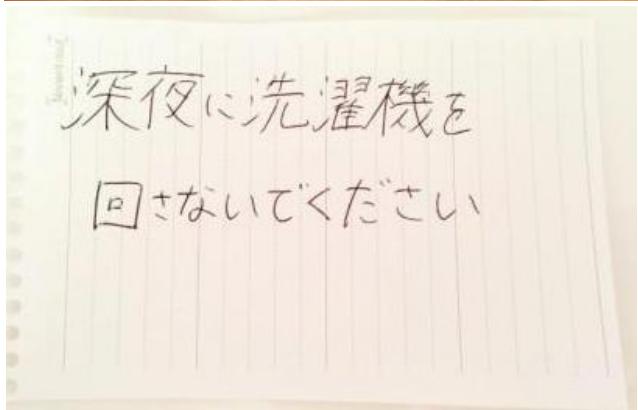 深夜に洗濯機を
回さないでください